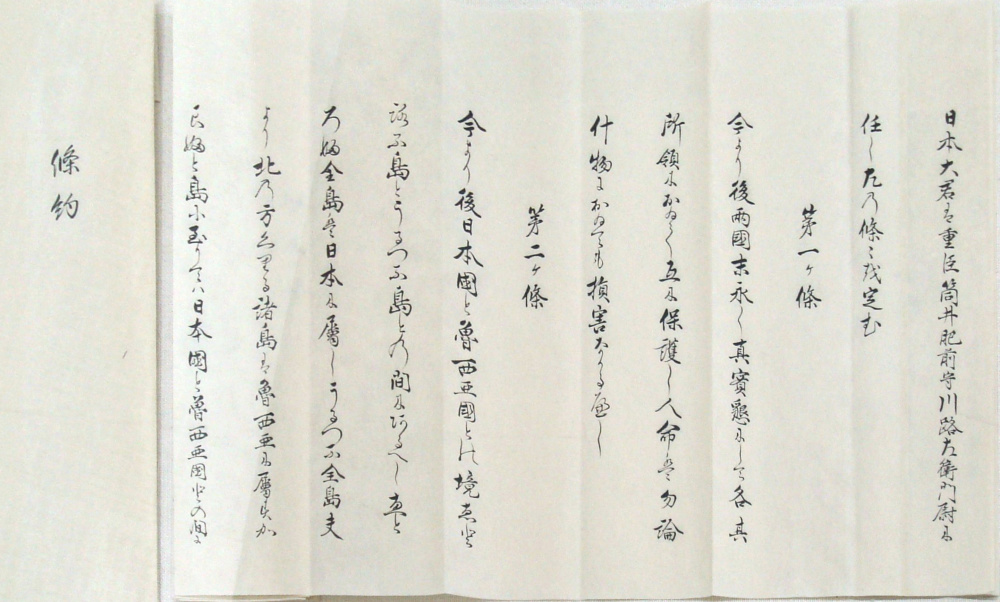 日本大君は重臣筒井肥前守川路左衛門尉に
任し左の條々を定む
第一ヶ條
今より後両國末永く真實懇にして各其
所領におゐて互に保護し人命は勿論
什物におゐても損害なかるへし
第二ヶ條
今より後日本國と魯西亜國との境ゑと
ろふ島とうるつふ島との間にあるへしゑと
ろふ全島は日本に属しうるつふ全島夫
より北の方クリル諸島は魯西亜に属すか
らふと島に至りては日本國と魯西亜國との間に
條約